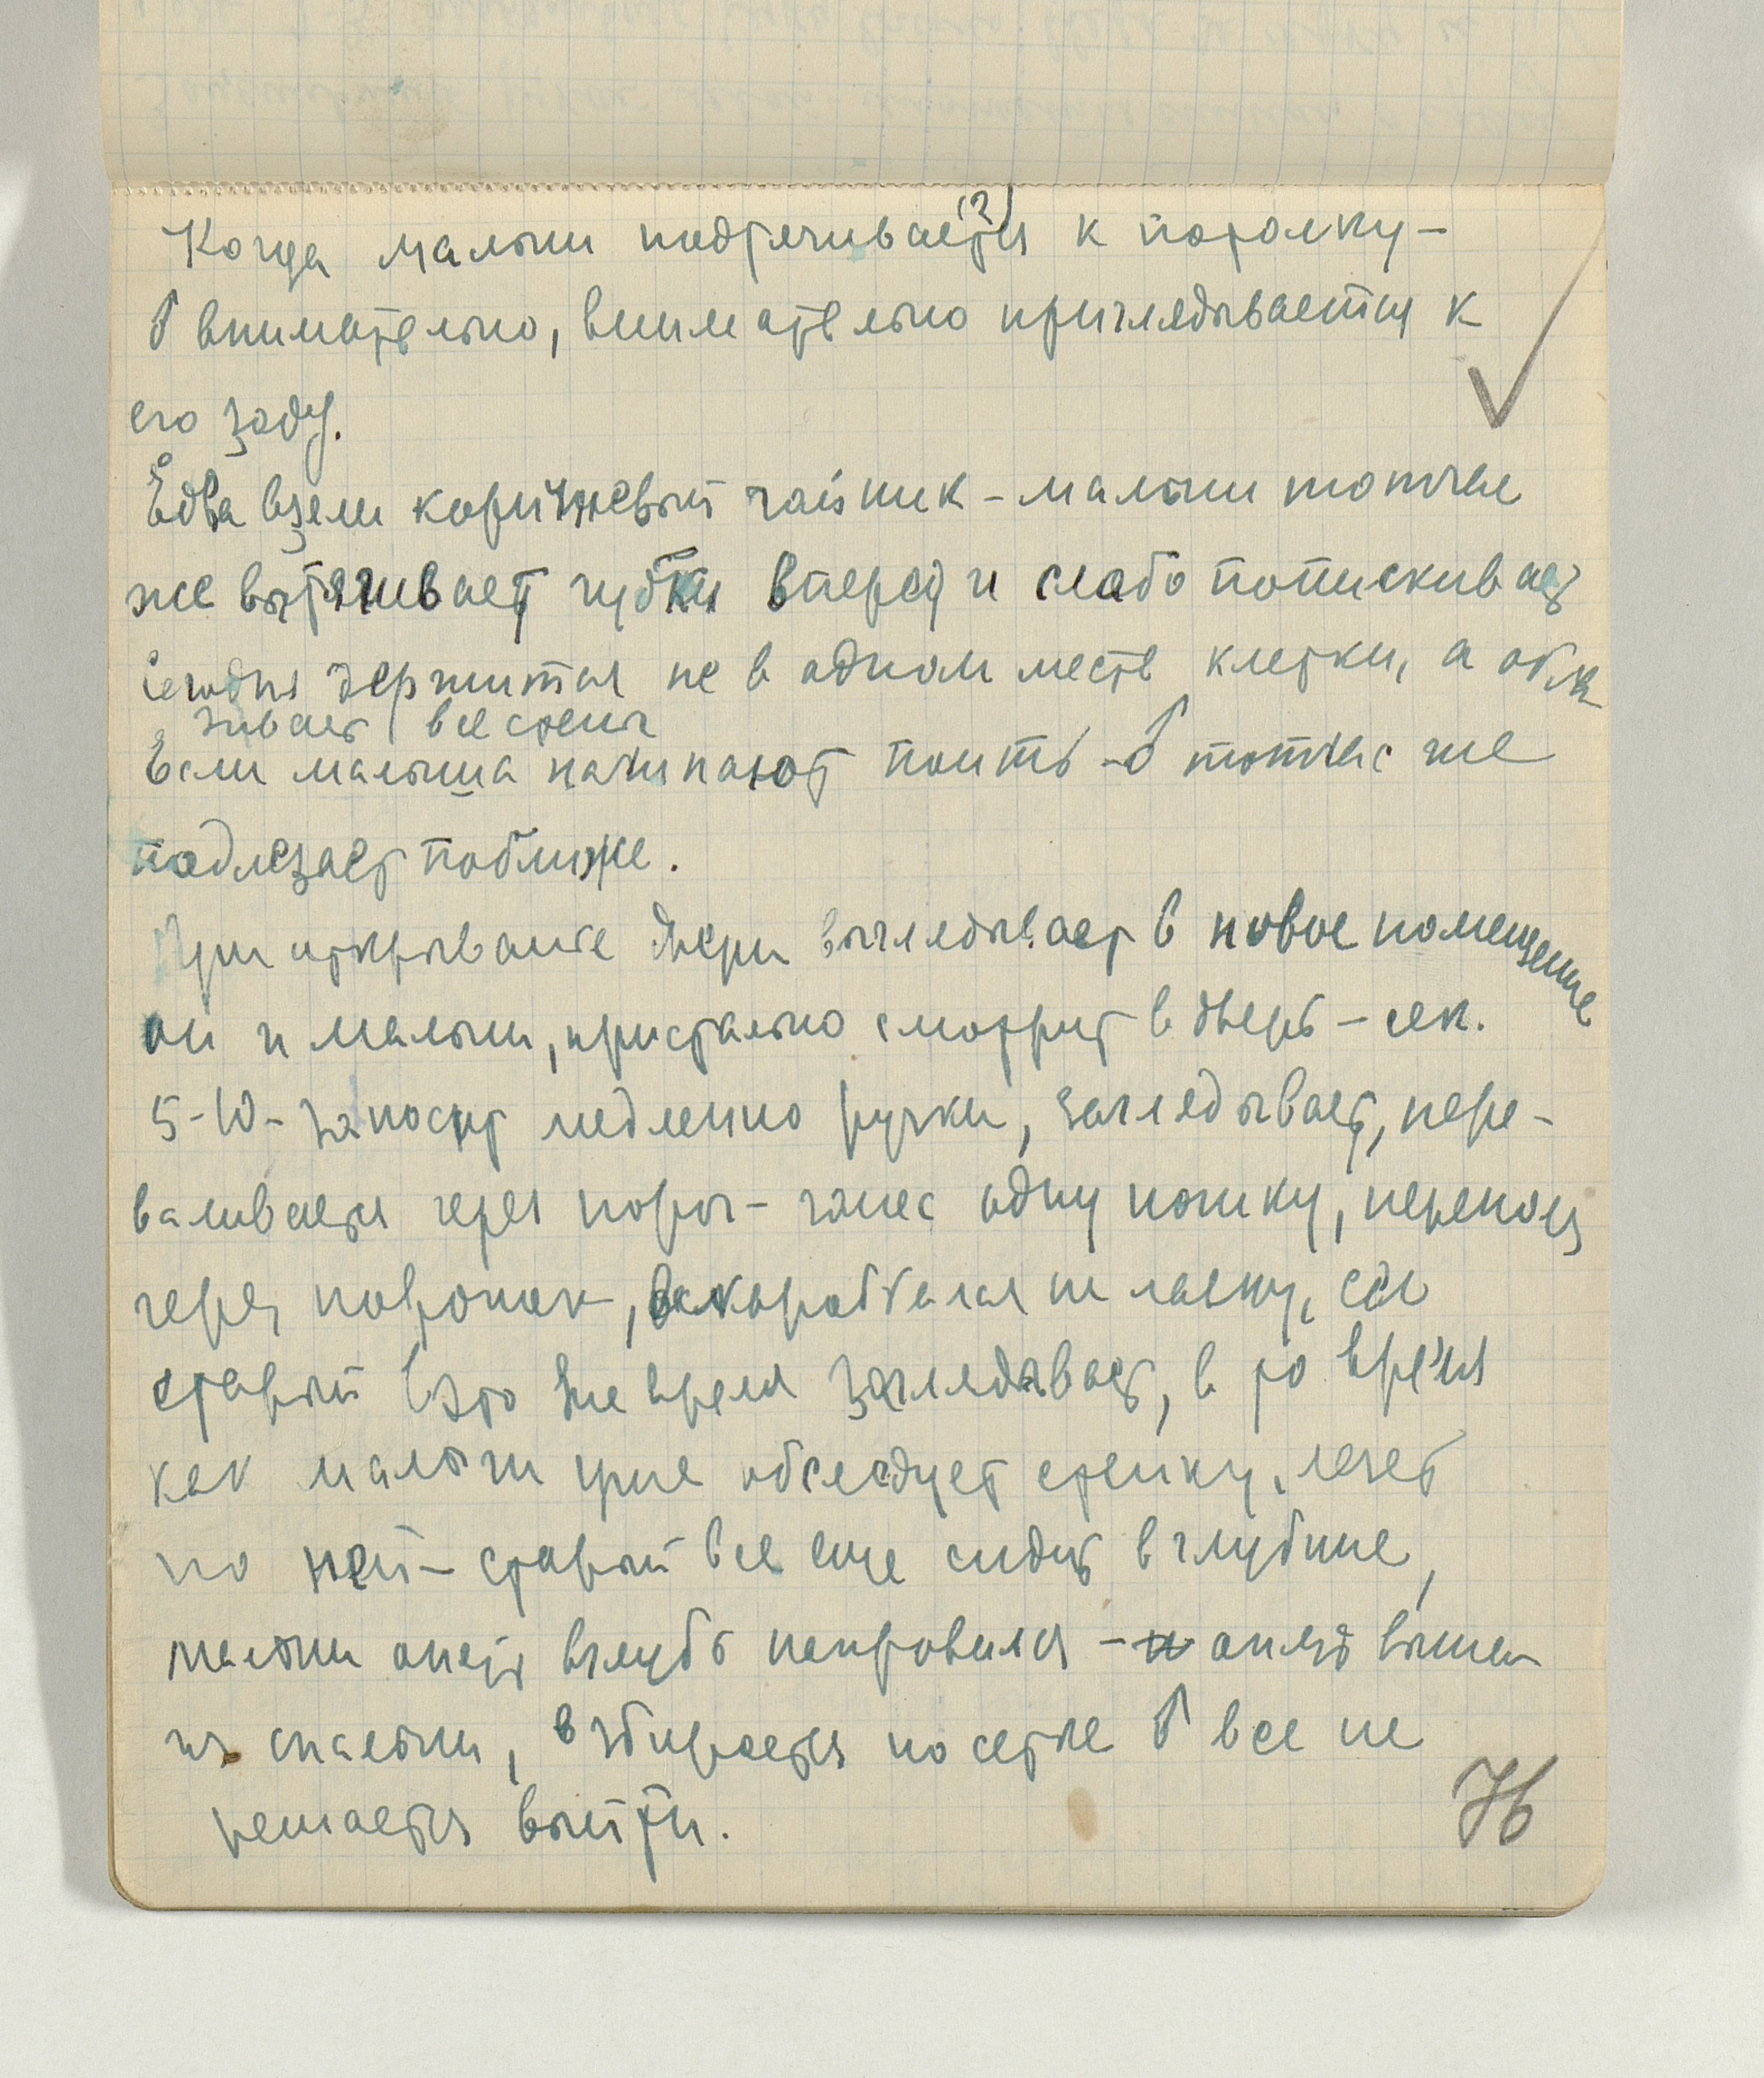 Когда малыш подтягивается (?) к потолку –
♂ внимательно, внимательно приглядывается к
его заду.
Едва взяли коричневый чайник – малыш тотчас
же вытягивает губки вперед и слабо попискивает
Сегодня держится не в одном месте клетки, а обла
зивает все стены
Если малыша начинают поить – ♂ тотчас же
подлезает поближе.
При открывании двери выглядывает в новое помещение
он и малыш, пристально смотрит в дверь – сек.
5-10 – заносит медленно ручки, заглядывает, пере-
валивается через порог – занес одну ножку, переполз
через порожек, вскарабкался на сел
старый в это же время заглядывает, в то время
как малыш уже обследует стенку, лезет
по ней – старый все еще сидит в глубине,
малыш опять вглубь направился – опять вышел
из спальни, взбирается по сетке ♂ все не
решается выйти.